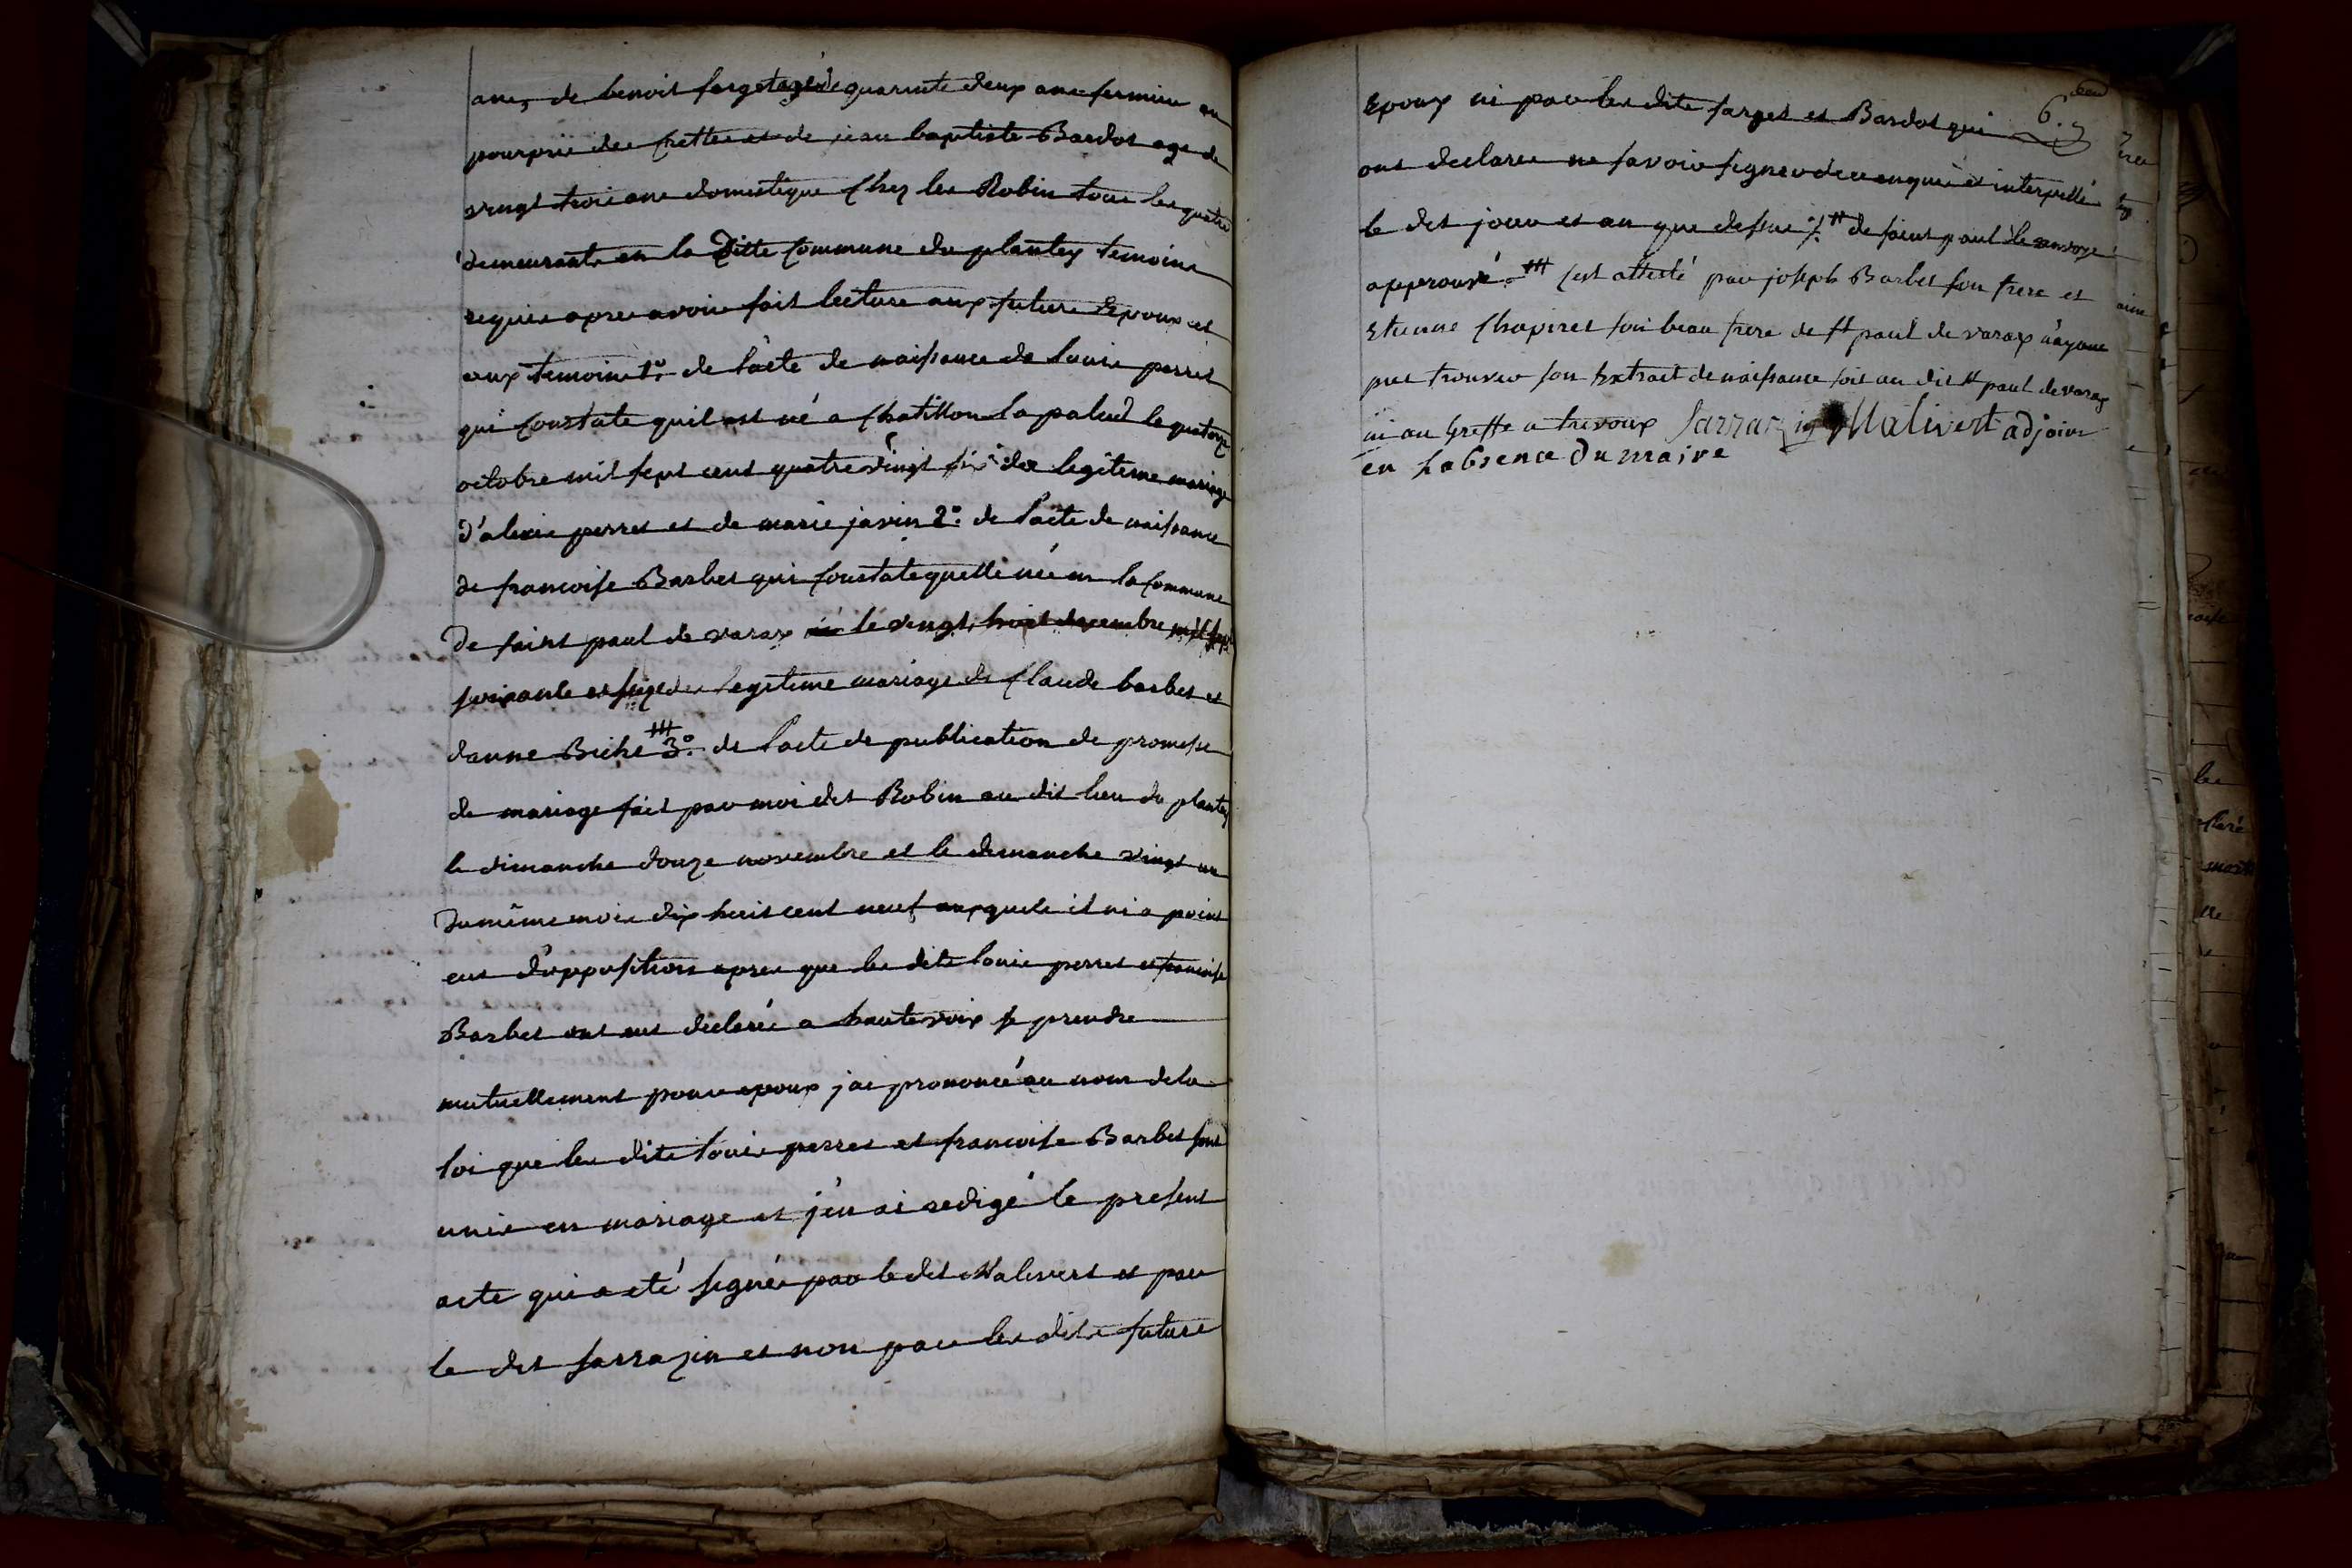 ans, de benoit farget agé de quarante deux ans fermier au
pourprix des frettes et de jean baptiste Bardot age de
vingt trois ans domestique chez les Robin tous les quatre
demeurants en la Ditte Commune du plantay temoins
requis apres avoir fait lecture aux futurs Epoux et
aux temoins 1º. de l'acte de naissance de louis perret
qui Constate quil est né a Chatillon la palud le quatorze
octobre mil sept cent quatre vingt six des legitime mariage
d'alexis perret et de marie javin 2º. de l'acte de naissance
de francoise Barbet qui Constate quelle née en la Commune
De saint paul de varax le vingt huit decembre mil sept
soixante et seize des legitime mariage de Claude barbet et
danne Biche ⧻ 3º. de l'acte de publication de promesse
de mariage fait par moi dit Robin au dit lieu du plantay
le dimanche douze novembre et le dimanche vingt un
du même mois dix huit cent neuf auxquels il ni a point
eut d'opposition apres que les dits louis perret et francoise
Barbet ont eut declaré a haute voix se prendre
mutuellement pour epoux jai prononcé au nom de la
loi que les dits louis perret et francoise Barbet sont
unis en mariage et j'en ai redigé le present
acte qui a eté signés par le dit Malivert et par
le dit sarrazin et non par les dits futurs
6.
Epoux ni par les dits farget et Bardot qui
ont declarer ne savoir signer de ce enquis et interpellé
le dit jour et an que dessus de saint paul le renvoye
approuvé. ⧻ C'est attesté par joseph Barbet son frere et
Etienne Chapiret son beau frere de st paul de varax n'ayant
put trouver son Extrait de naissance soit au dit st paul de varax
ni au Greffe a trevoux Sarrazin Malivert adjoint
en l'absence du maire